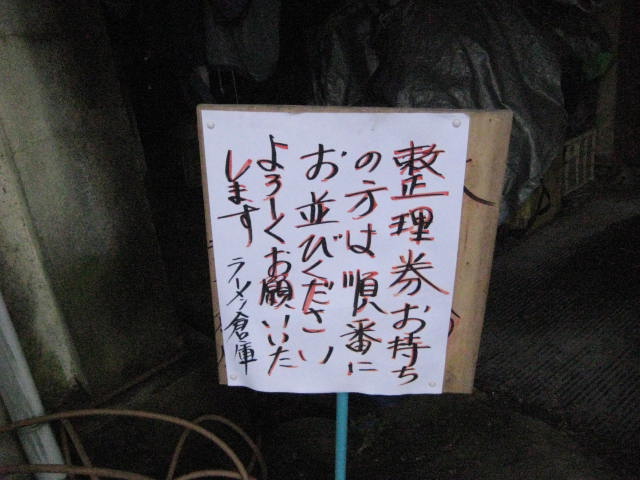 整理券お持ち
の方は順番に
お並びください
よろしくお願いいた
します
ラーメン倉庫